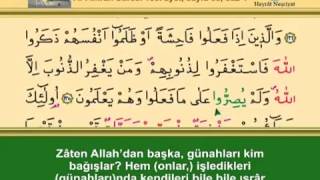 Hayrât Neşriyat
وَالَّذِينَ اِذَا فَعَلُوا فَاحِشَةً اَوْ ظَلَمُوا اَنْفُسَهُمْ ذَكَرُوا
اللهَ فَاسْتَغْفَرُوا لِذُنُوبِهِمْ وَمَنْ يَغْفِرُ الذُّنُوبَ اِلَّا
اللهُ وَلَمْ يُصِرُّوا عَلٰى مَا فَعَلُوا وَهُمْ يَعْلَمُونَ اُولٰئِكَ
Zâten Allah'dan başka, günahları kim
bağışlar? Hem (onlar,) işledikleri
(günahları)nda kendileri bile bile ısrâr